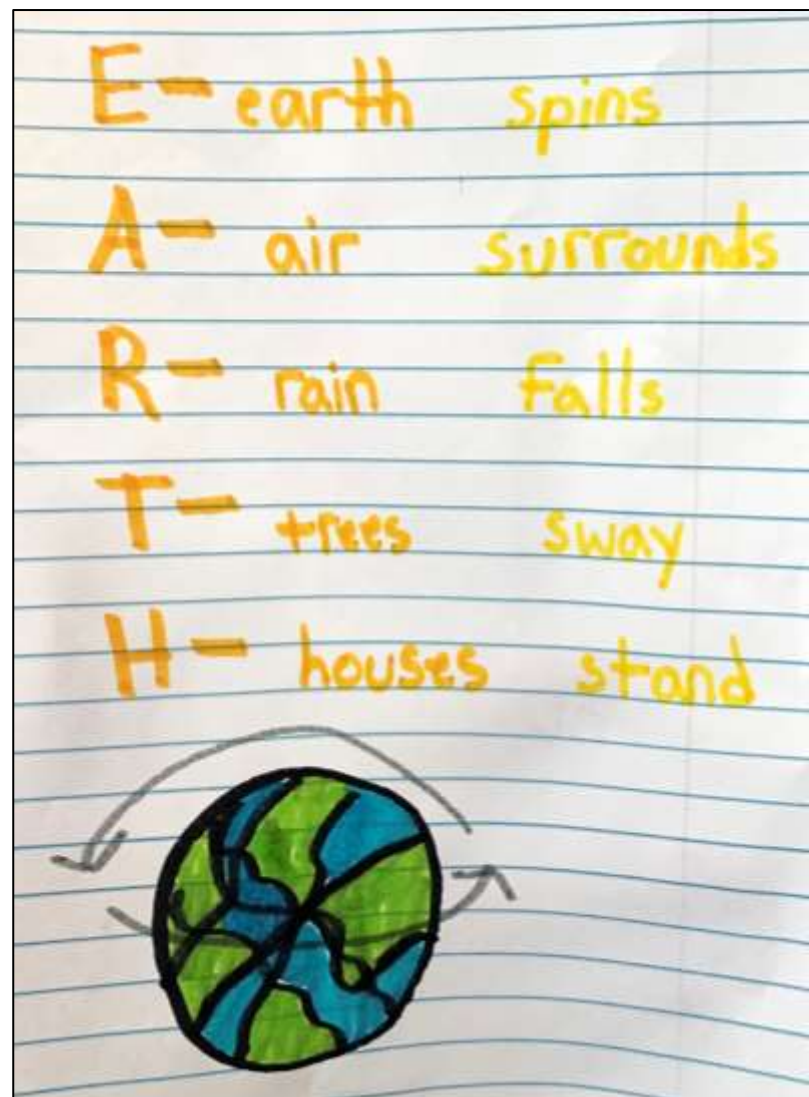 E- earth spins
A- air surrounds
R- rain Falls
T- trees sway
H- houses stand